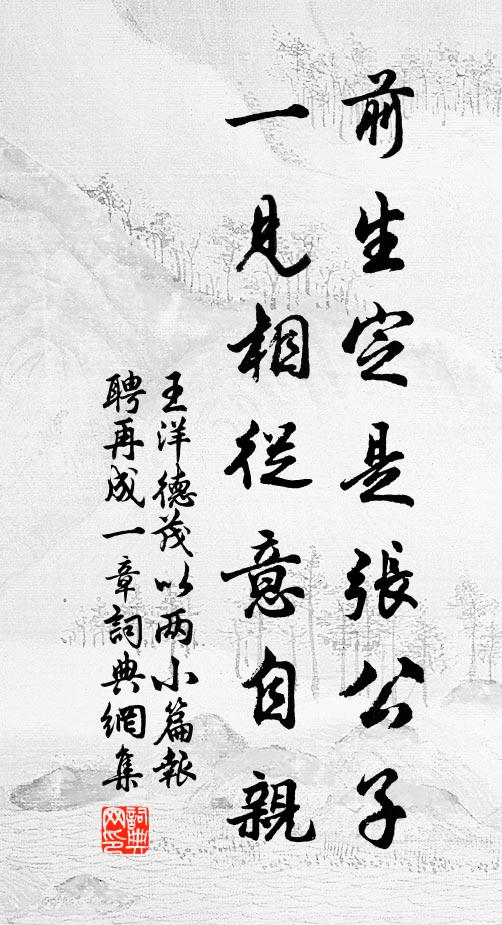 前生定是張公子
一見相從意自親
王洋德茂以两小篇報
聘再成一章詞典網集
詞典
网印